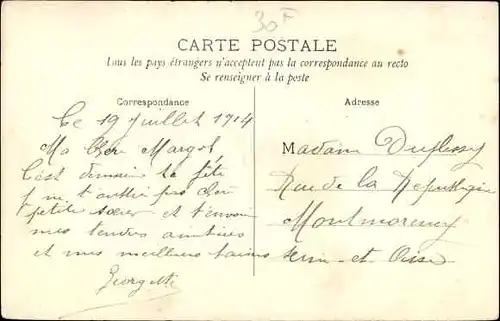 30F
CARTE POSTALE
Tous les pays étrangers n'acceptent pas la correspondance au recto
Se renseigner à la poste
Correspondance
Adresse
Le 19 Juillet 1914
Ma Chère Margot
C'est demain ta fête
je ne t'oublie pas
petite sœur et t'envoie
mes tendres amitiés
et mes meilleurs baisers
Georgette
Madame Duflessy
Rue de la République
Montmorency
Seine-et-Oise